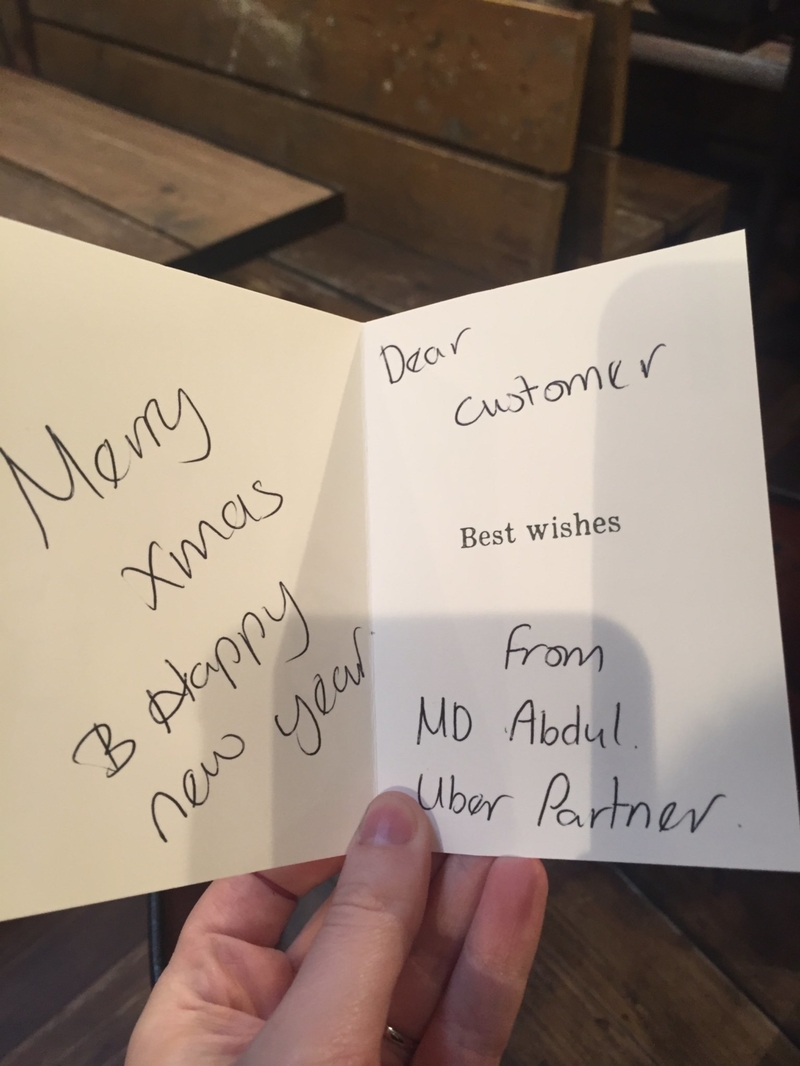 Merry
Xmas
B Happy
new year
Dear
customer
Best wishes
from
MD Abdul.
Uber Partner.